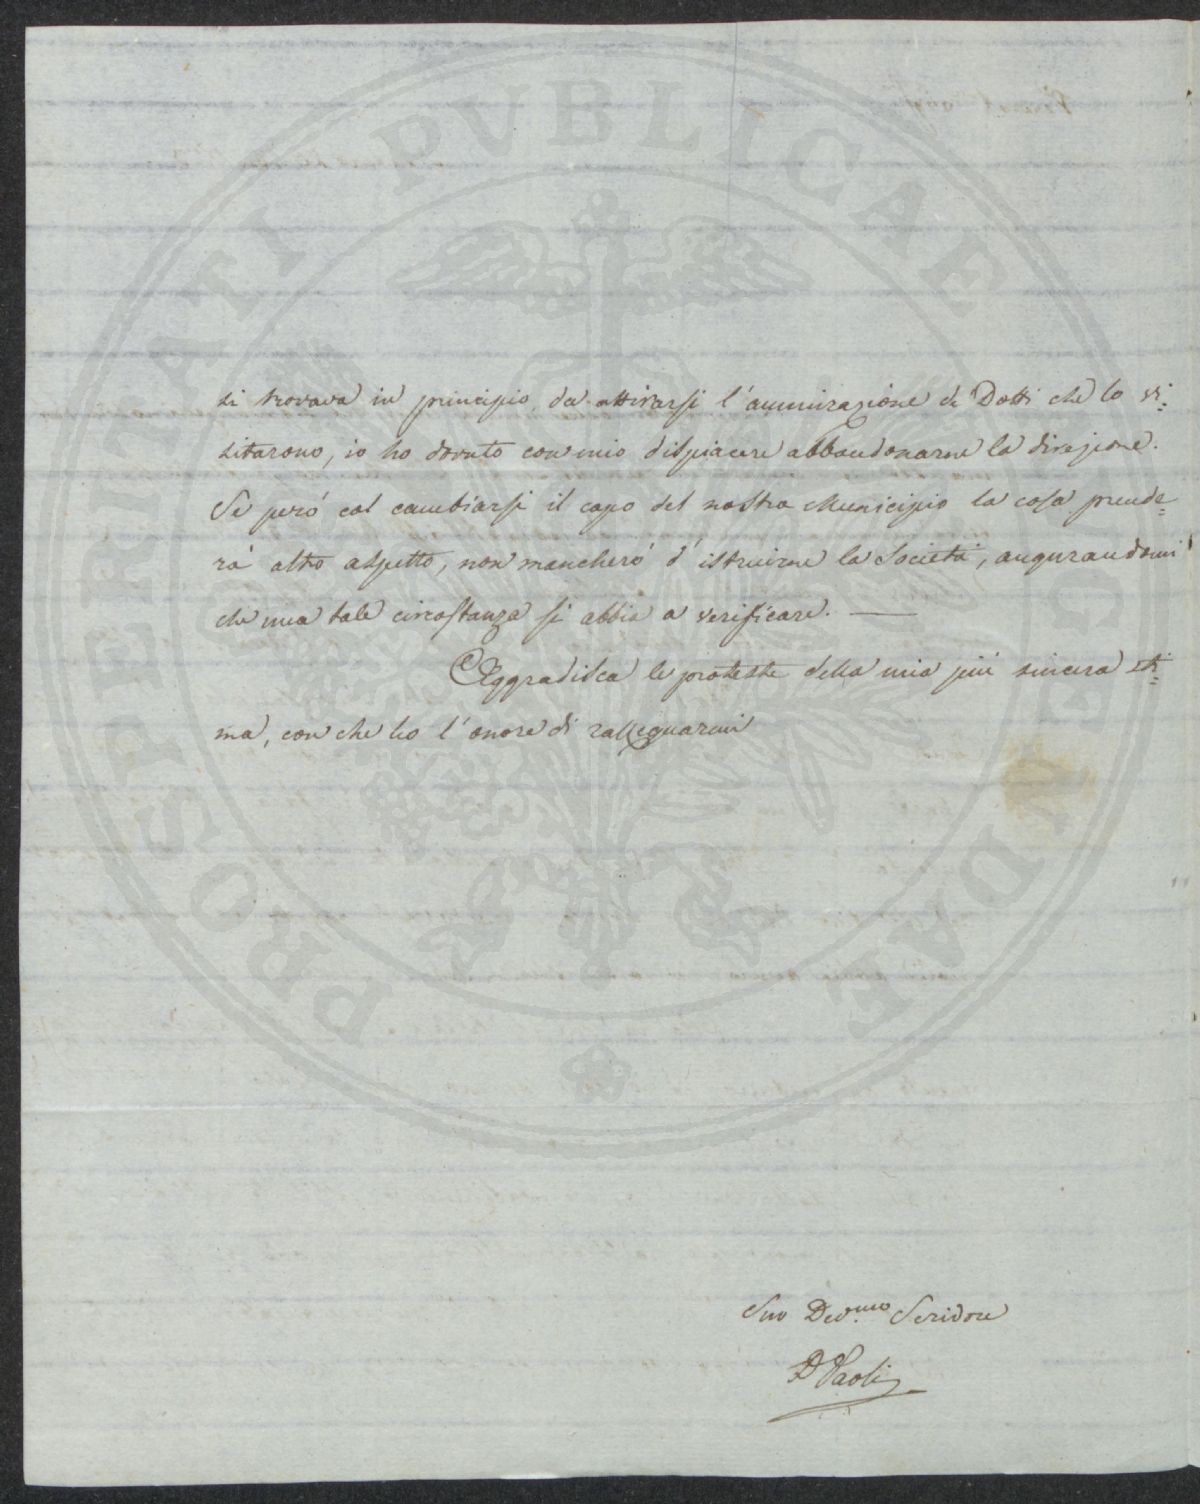 PROSPERITATI PUBLICAE AUGENDAE
si trovava in principio, da attirarsi l'ammirazione di Dotti che lo vi=
sitarono, io ho dovuto con mio dispiacere abbandonarne la direzione.
Se però col cambiarsi il capo del nostro Municipio la cosa prende=
rà altro aspetto, non mancherò d'istruirne la Società, augurandomi
che una tale circostanza si abbia a verificare. —
Aggradisca le proteste della mia più sincera sti=
ma, con che ho l'onore di rassegnarmi
Suo Dev.mo Servidore
D Paoli